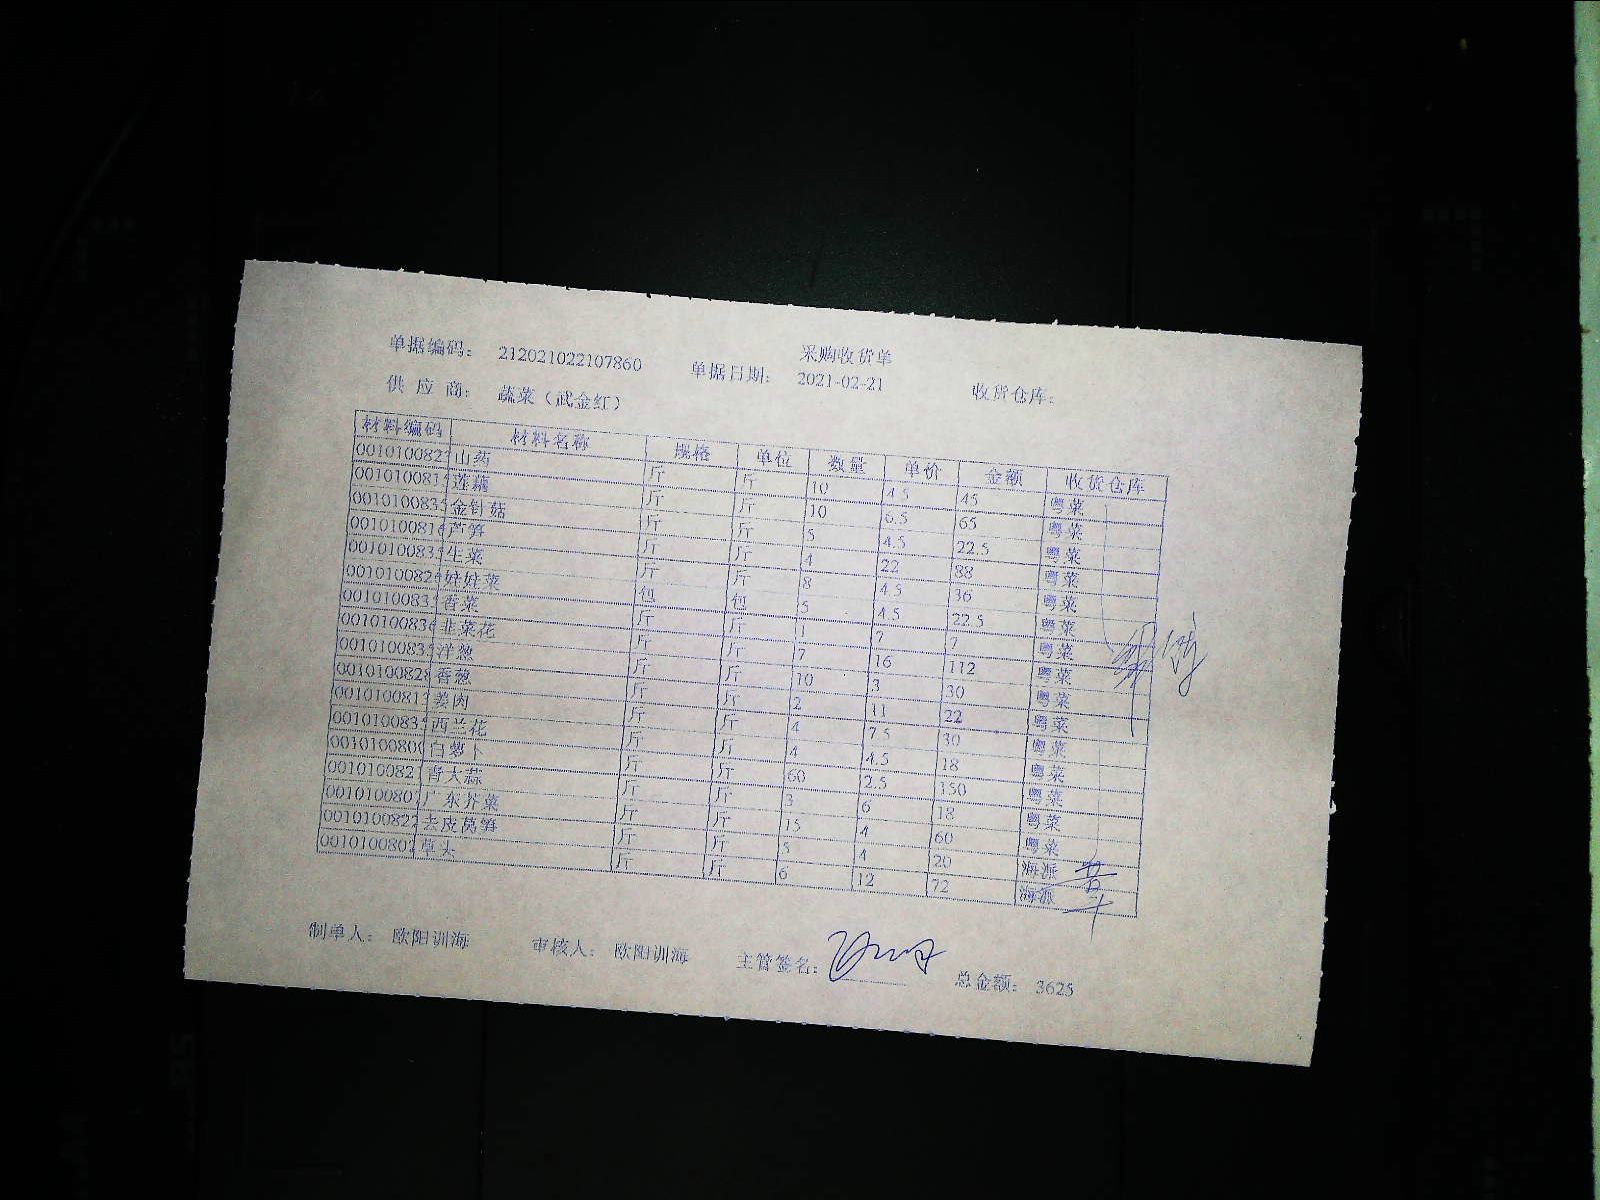 采购收货单
单据编码： 212021022107860 单据日期： 2021-02-21 收货仓库：
供 应 商： 蔬菜（武金红）
材料编码 材料名称 规格 单位 数量 单价 金额 收货仓库
001010082 山药 斤 斤 10 4.5 45 粤菜
001010081 莲藕 斤 斤 10 6.5 65 粤菜
001010083 金针菇 斤 斤 5 4.5 22.5 粤菜
001010081 芦笋 斤 斤 4 22 88 粤菜
001010083 生菜 斤 斤 8 4.5 36 粤菜
001010082 娃娃菜 包 包 5 4.5 22.5 粤菜
001010083 香菜 斤 斤 1 7 7 粤菜
001010083 韭菜花 斤 斤 7 16 112 粤菜
001010083 洋葱 斤 斤 10 3 30 粤菜
001010082 香葱 斤 斤 2 11 22 粤菜
001010081 姜肉 斤 斤 4 7.5 30 粤菜
001010083 西兰花 斤 斤 4 4.5 18 粤菜
001010080 白萝卜 斤 斤 60 2.5 150 粤菜
001010082 青大蒜 斤 斤 3 6 18 粤菜
001010080 广东芥菜 斤 斤 15 4 60 粤菜
001010082 去皮莴笋 斤 斤 5 4 20 海派
001010080 草头 斤 斤 6 12 72 海派
制单人： 欧阳训海 审核人： 欧阳训海 主管签名： 总金额： 3625